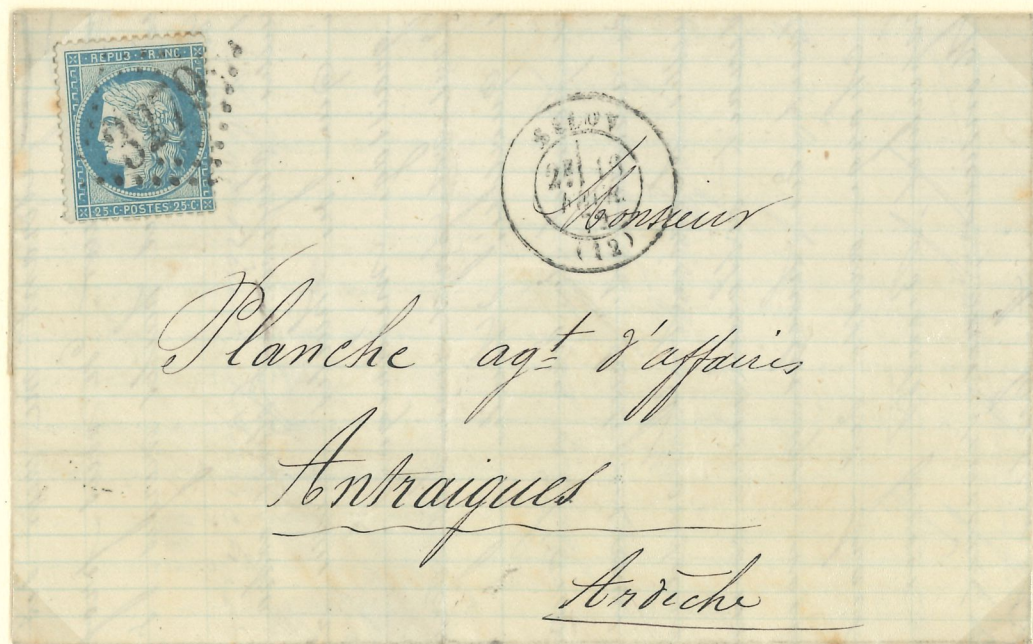 REPUB·FRANC·
3279
25·C·POSTES·25·C
SALON
2E
(12)
Monsieur
Planche agt d'affaires
Antraigues
Ardèche